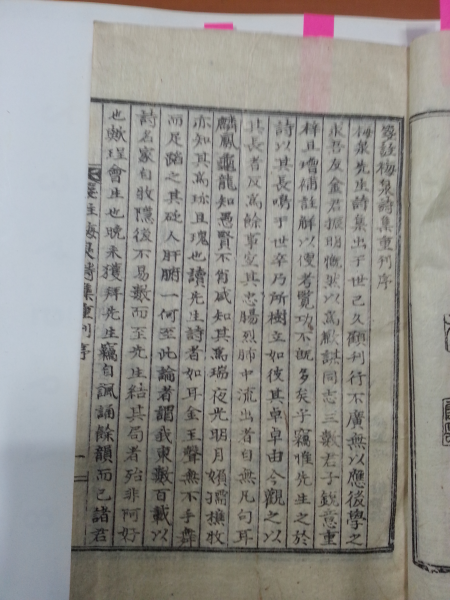 箋註梅泉詩集重刊序
梅泉先生詩集出于世已久顧刊行不廣無以應後學之
求吾友金君振明慨然以爲歉謀同志三數君子鋭意重
梓且增補註解以便考覽功不旣多矣乎竊惟先生之於
詩以其長鳴于世卒乃所樹立如彼其卓卓由今觀之以
其長者反爲餘事寔其忠腸烈肺中流出者自無凡句耳
麟鳳龜龍知愚賢不肖咸知其爲瑞夜光明月嬰孺樵牧
亦知其爲珍且瑰也讀先生詩者如耳金玉聲無不手舞
而足蹈之其砭人肝腑一何至此論者謂我東數百載以
詩名家自牧隱後不易數而至先生結其局者殆非阿好
也歟珵會生也晩未獲拜先生竊自諷誦餘韻而已諸君
箋註梅泉詩集重刊序
一